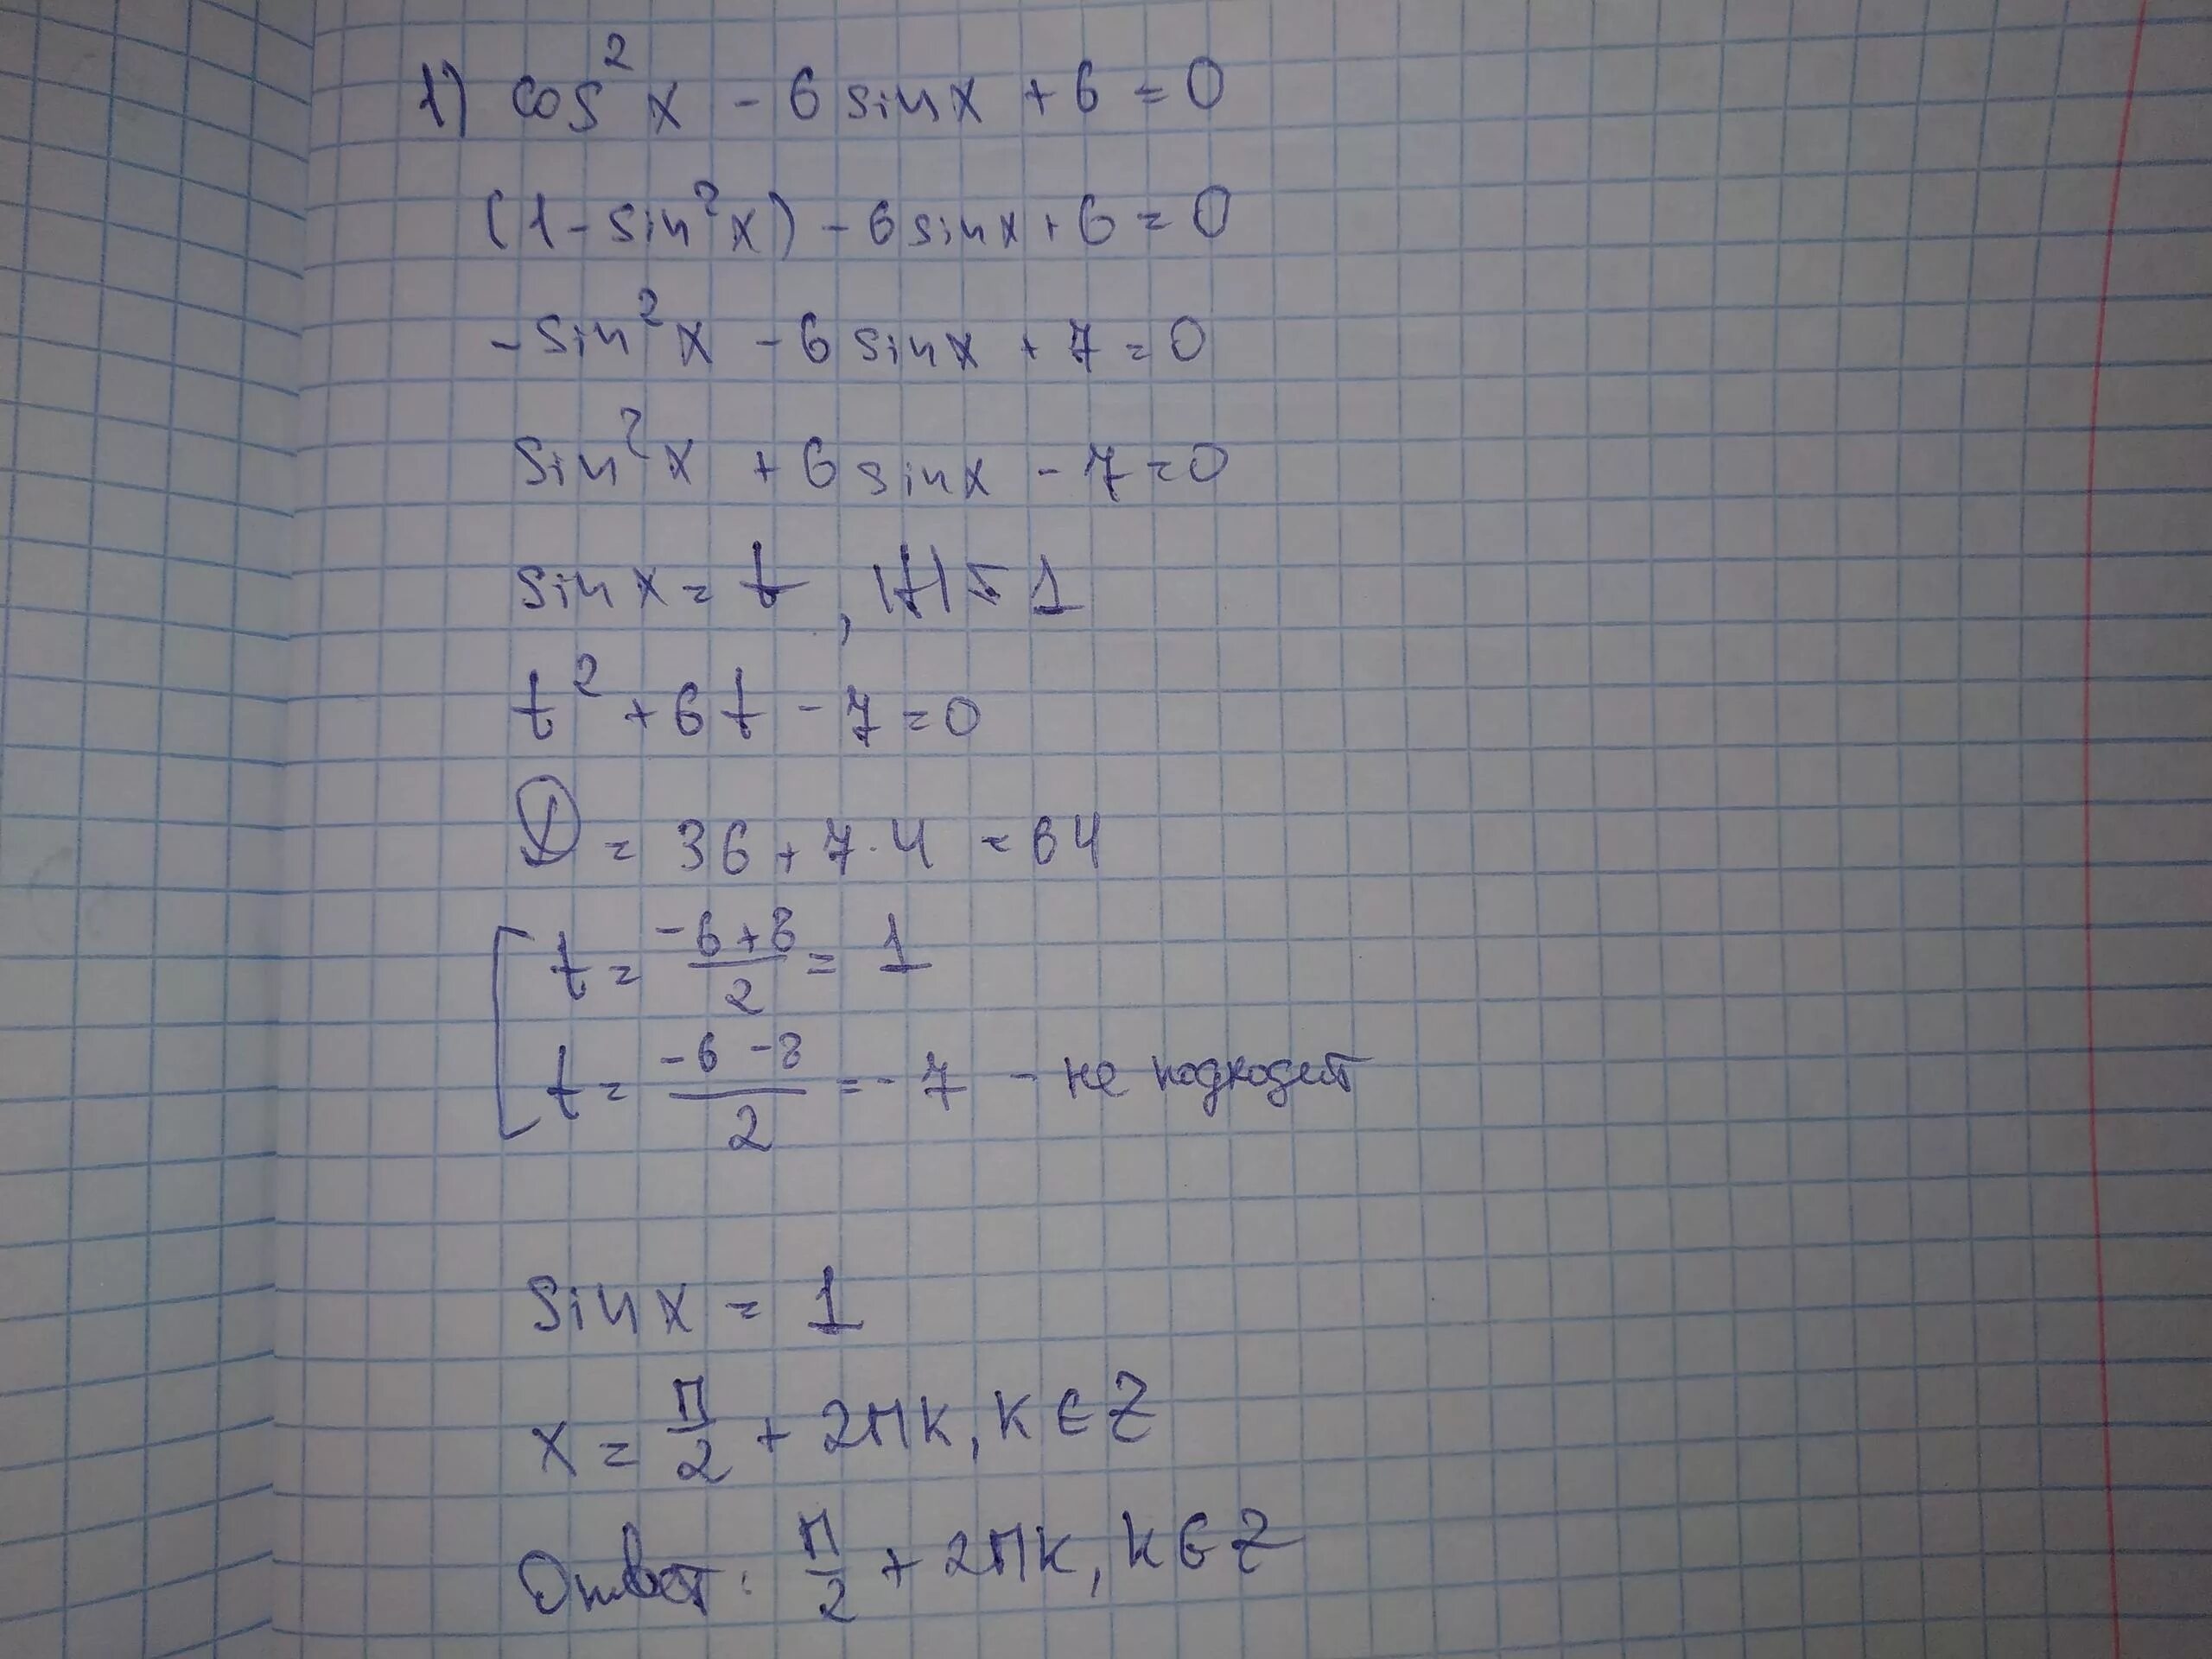 1) cos²x - 6 sinx + 6 = 0
(1 - sin²x) - 6 sinx + 6 = 0
- sin²x - 6 sinx + 7 = 0
sin²x + 6 sinx - 7 = 0
sinx = t, |t| ≤ 1
t² + 6t - 7 = 0
D = 36 + 7·4 = 64
t = (-6+8)/2 = 1
t = (-6-8)/2 = -7 - не подходит
sinx = 1
x = π/2 + 2πk, k ∈ Z
Ответ: π/2 + 2πk, k ∈ Z